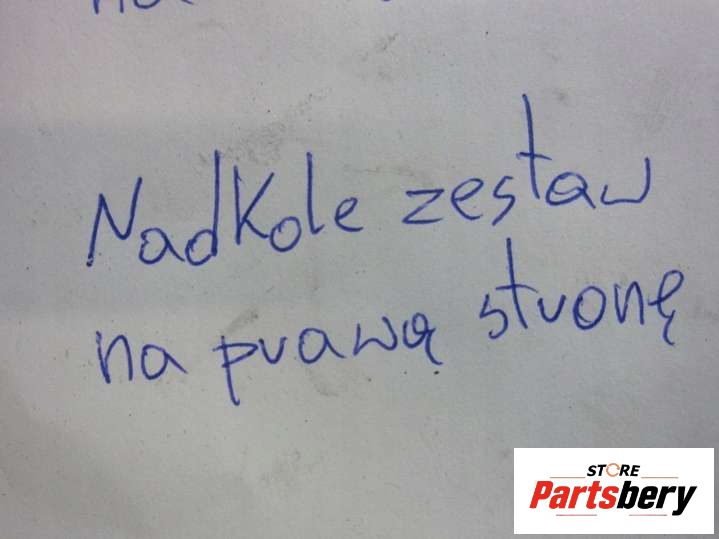 Nadkole zestaw
na prawą stronę
STORE
Partsbery